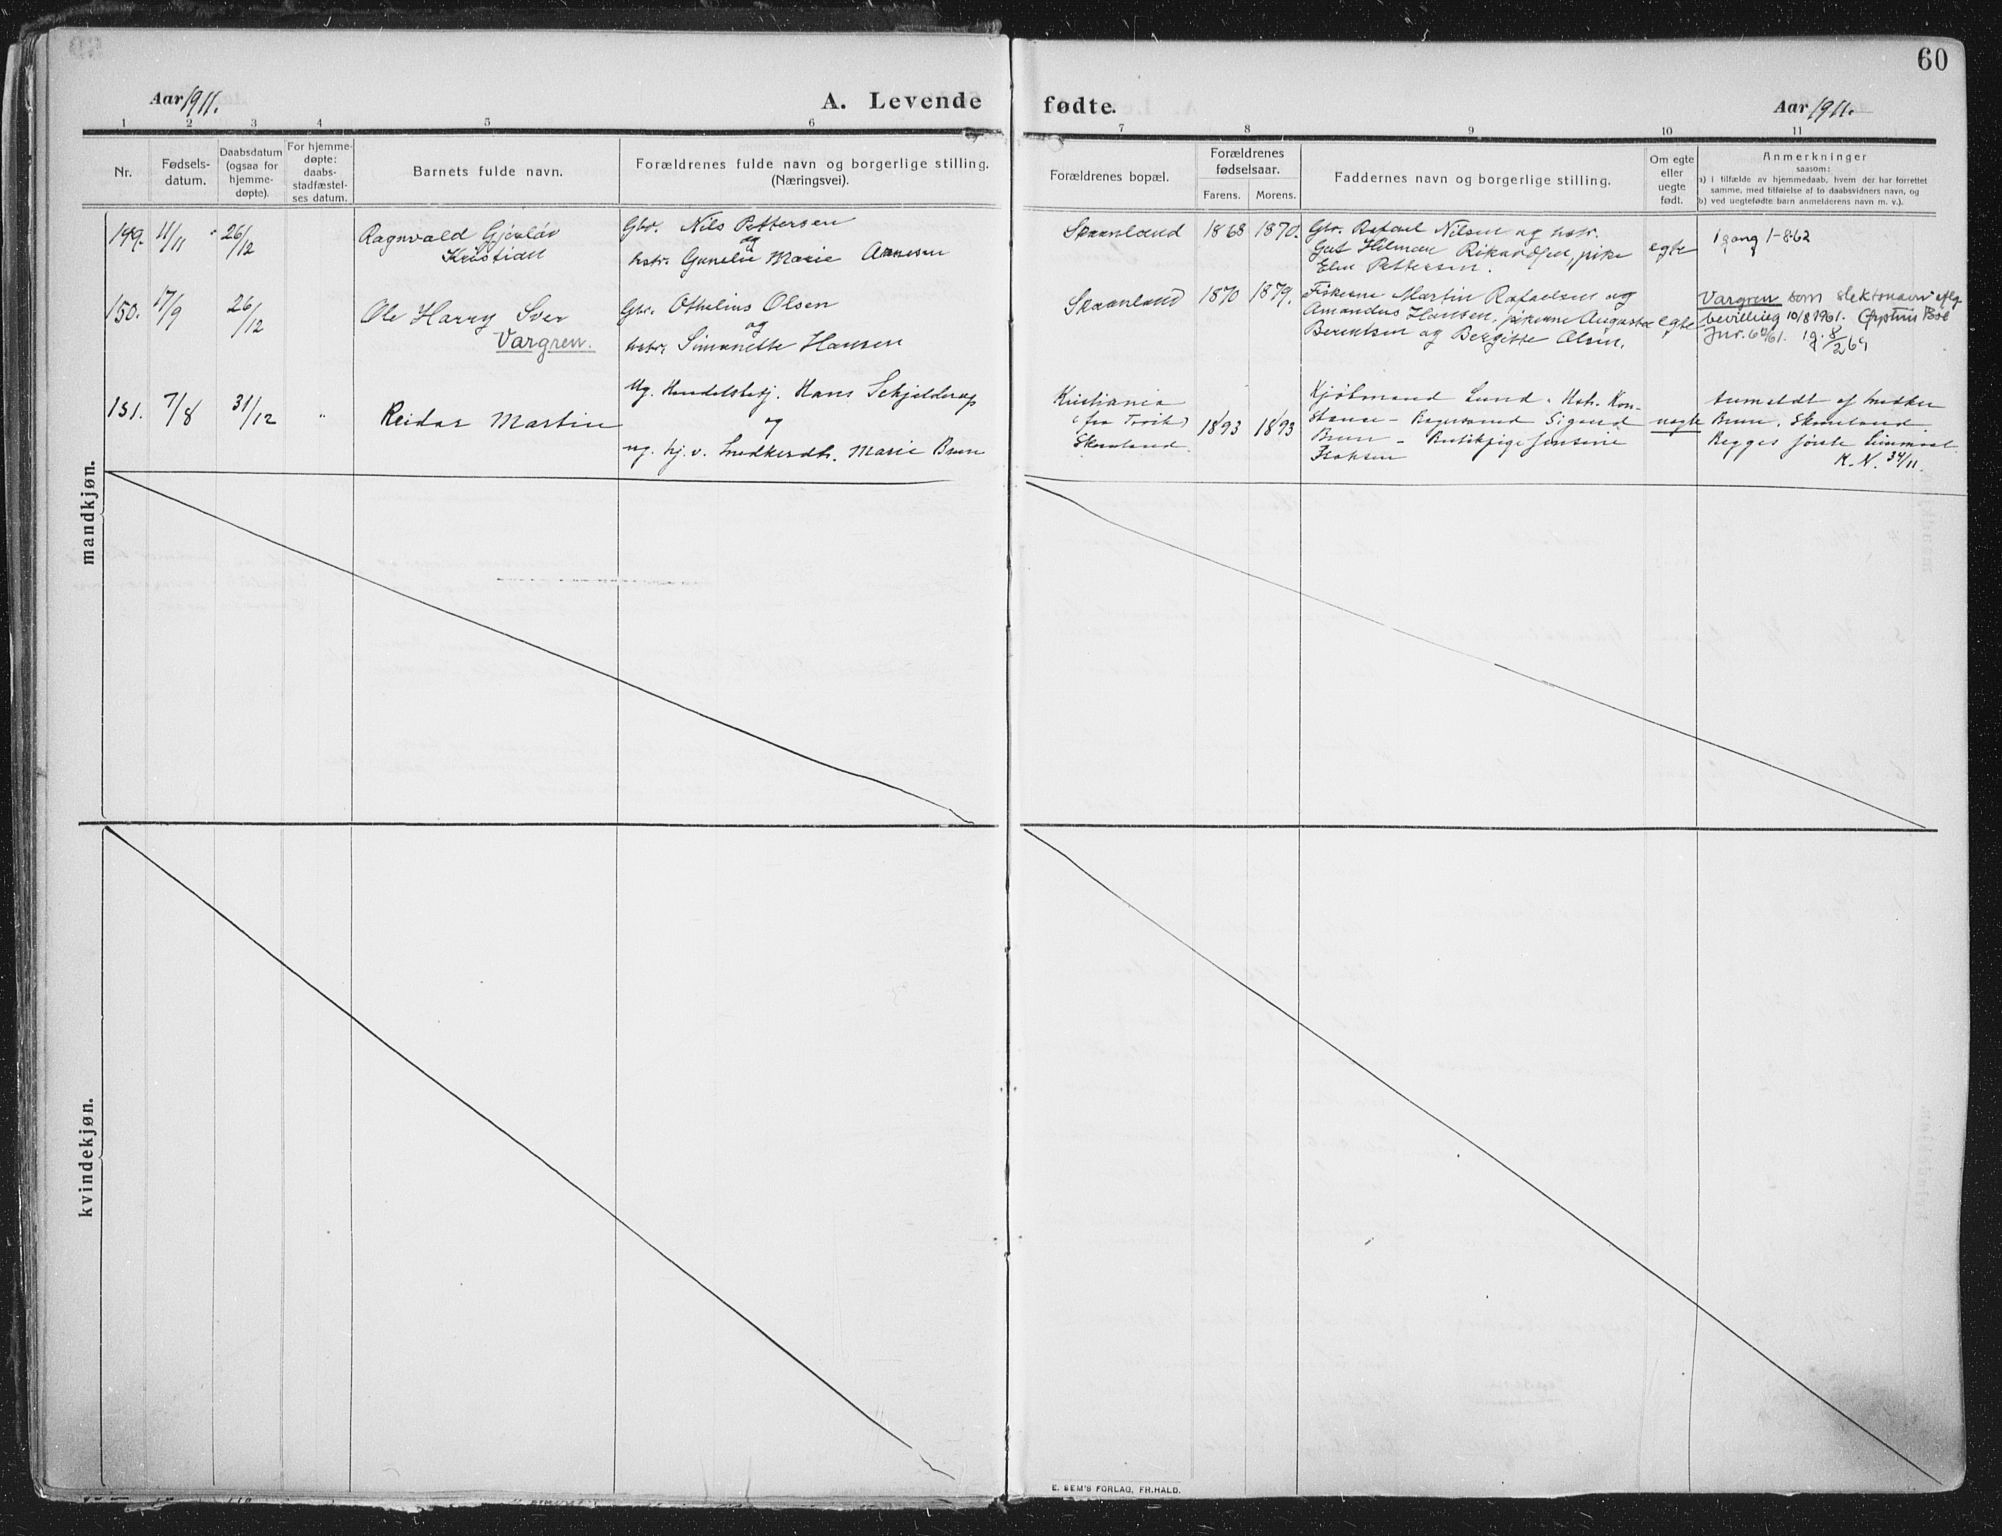 60
Aar 1911.
A. Levende fødte.
Aar 1911.
1 2 3 4 5 6 7 8 9 10 11
Nr.
Fødsels-
datum.
Daabsdatum
(ogsaa for
hjemme-
døpte).
For hjemme-
døpte:
daabs-
stadfæstel-
ses datum.
Barnets fulde navn.
Forældrenes fulde navn og borgerlige stilling.
(Næringsvei).
Forældrenes bopæl.
Forældrenes
fødselsaar.
Farens. Morens.
Faddernes navn og borgerlige stilling.
Om egte
eller
uegte
født.
Anmerkninger
saasom:
a) i tilfælde av hjemmedaab, hvem der har forrettet
samme, med tilføielse af to daabsvidners navn, og
b) ved uegtefødte barn anmelderens navn m. v.).
mandkjøn.
149. 11/11 26/12
Ragnvald
Kristian
Gbr. Nils Pettersen
og
hstr. Marie
Skaanland
1868 1870.
Gbr. Rafael Nilsen og hstr.
pike
Pettersen.
egte
1 gang 1-8-62
150. 17/9 26/12
Ole Harry
Vargren.
Gbr. Othelius Olsen
og
hstr. Simonette Hansen
Skaanland
1870 1879.
Fiskerne Martin Rafaelsen og
Amandus Hansen, pikerne Augusta
Berentsen og Bergitte Olsen.
egte
Vargren som slektsnavn iflg
bevilling 10/8 1961.
151. 7/8 31/12 "
Reidar Martin
Ug. Hans Schjelderup
og
ug. Marie Brun
Kristiania
(fra
Skaanland.
1893 1893
Kjøbmand Lund
Brun
Isaksen
uegte
Anmeldt af
Brun, Skaanland.
Begges første
K. N. 34/11.
kvindekjøn.
E. SEM'S FORLAG, FR.HALD.